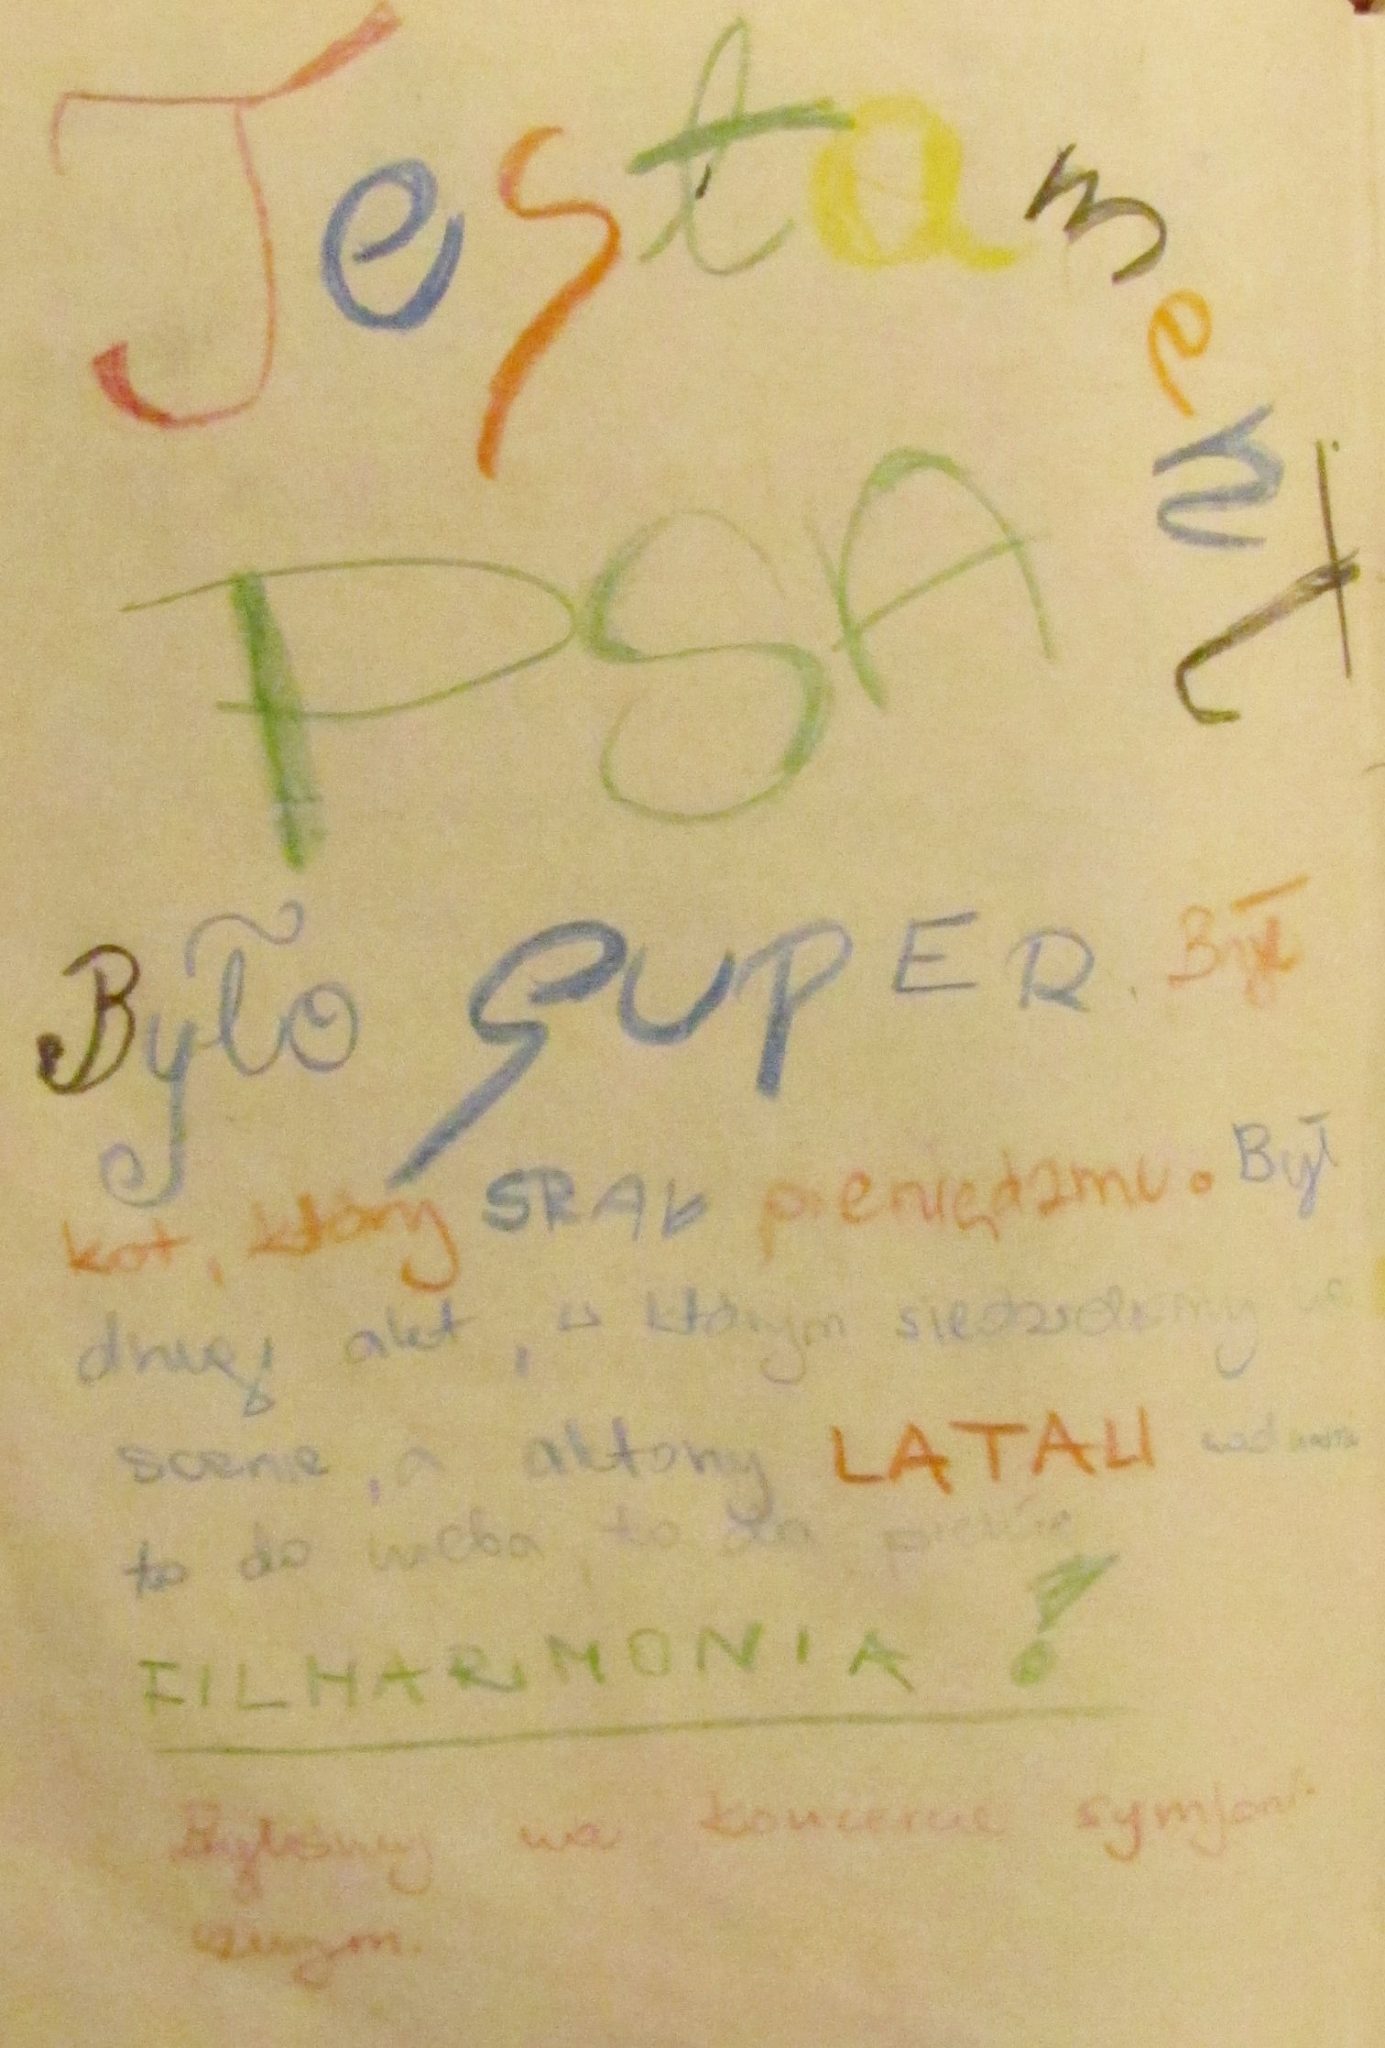 Testament
PSA
Było SUPER. Był
kot, który SRAŁ pieniędzmi. Był
drugi akt, w którym siedzieliśmy na
scenie, a aktorzy LATALI nad nami
to do nieba, to do piekła
FILHARMONIA!
Byliśmy na koncercie symfoni-
cznym.